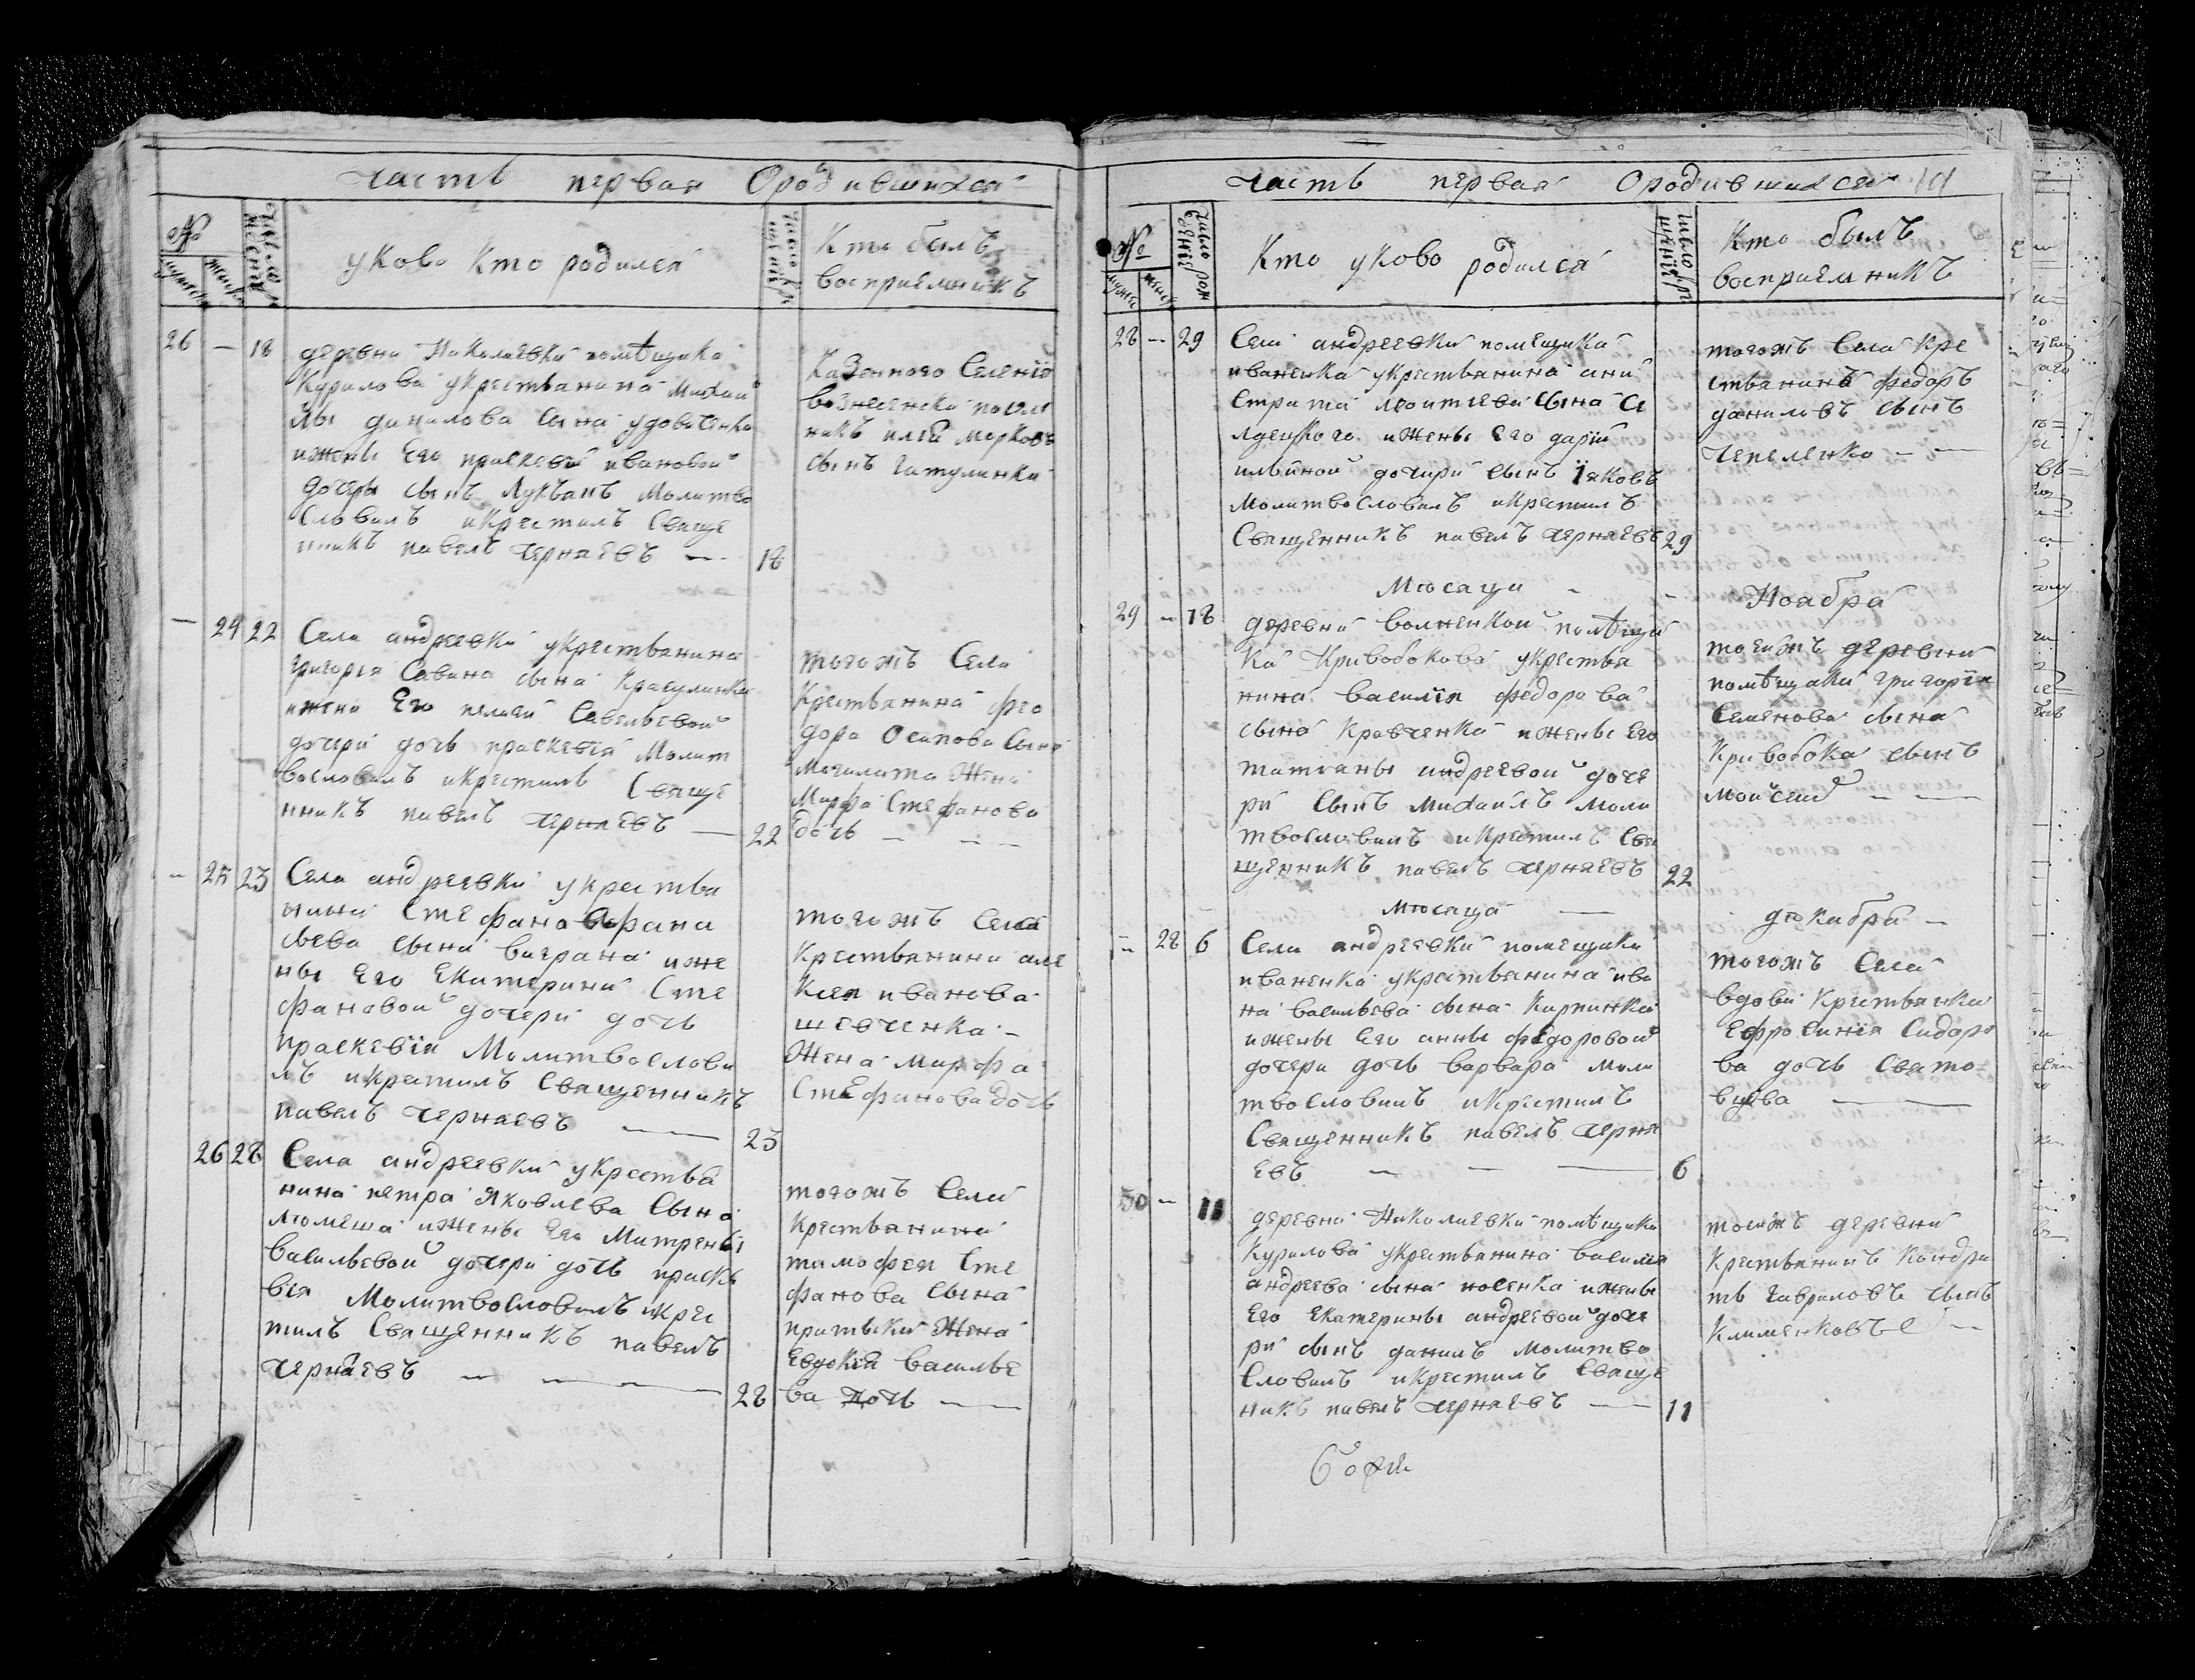 часть первая Ородившихся
№
мужеска
женска
число ро
жденія
уково Кто родился
число кр
щенія
Кто былъ
восприемникъ
26 — 18
деревни Николаевки помѣщика
Курилова укрестьянина Михаи
лы данилова сына удовиченка
ижены Его праскевѣи ивановой
дочеры сынъ Лукъанъ Молитво
Словилъ икрестилъ Свяще
нникъ павелъ чернаевъ — 18
Казенного Селенія
вознесенски посели
никъ илья марковъ
сынъ гатулинка
— 24 22
Села андреевки укрестьянина
григорія Савина сына Красулинки
ижени Его пелагеи Савельевой
дочери дочь праскевія Молит
вословилъ икрестилъ Свяще
нникъ павелъ чернаевъ — 22
тогожъ Села
Крестьянина фео
дора Осипова Сына
Могилата Жена
Марфа Стефанова
дочь — — —
— 25 23
Села андреевки укрестья
нина Стефана афана
сьева сына ваграна иже
ны Его Екатерини Сте
фановой дочери дочь
праскевія Молитвослови
лъ икрестилъ Священникъ
павелъ чернаевъ — 23
тогожъ Села
Крестьянина але
Ксея иванова
шевченка —
Жена марфа
Стефанова дочь
26 28
Села андреевки укрестья
нина петра Яковлева Сына
люмеша ижены Его Матрены
васильевой дочери дочь праске
вія Молитвословилъ икрес
тилъ Священникъ павелъ
чернаевъ — — — — 28
тогожъ Села
Крестьянина
тимофея Сте
фанова Сына
притыки Жена
Евдокія василье
ва дочь — —
часть первая Ородившихся
№
мужес
женск
число рож
денія
Кто уково родился
число кр
щенія
Кто былъ
восприемникъ
28 — 29
Села андреевки помещика
иваненка укрестьянина ани
Страта леонтиева сына Се
лдецкого ижены Его даріи
ильиной дочири сынъ Іяковъ
Молитвословилъ икрестилъ
Священникъ павелъ чернаевъ 29
тогожъ Села Кре
стьянинъ федоръ
даниловъ сынъ
чепеленко — —
Мѣсаца — — Ноабра
29 — 18
деревни волненкой помѣщи
ка Кривобокова укрестья
нина василія федорова
сына Кравченка ижены Его
татіаны андреевой доче
ри Сынъ михаилъ моли
твословилъ икрестилъ Свя
щенникъ павелъ чернаевъ 22
тоейжъ деревни
помѣщика григорія
Семенова сына
Кривобока сынъ
моисей — —
Мѣсаца — декабра —
— 28 6
Села андреевки помещика
иваненка укрестьянина ива
на васильева сына Кирпинки
ижены Его анны федоровой
дочери дочь варвара моли
твословилъ икрестилъ
Священникъ павелъ черна
евъ — — — 6
тогожъ Села
вдова Крестьянка
Ефросинія Сидоро
ва дочь Свято
вцева —
30 — 11
деревни Николаевки помѣщика
Курилова укрестьянина василия
андреева сына носенка ижены
Его Екатерины андреевой доче
ри сынъ данилъ молитво
Словилъ икрестилъ Свяще
никъ павелъ чернаевъ — 11
тоейжъ деревни
Крестьянинъ Кондра
тъ гавриловъ сынъ
Клименковъ —